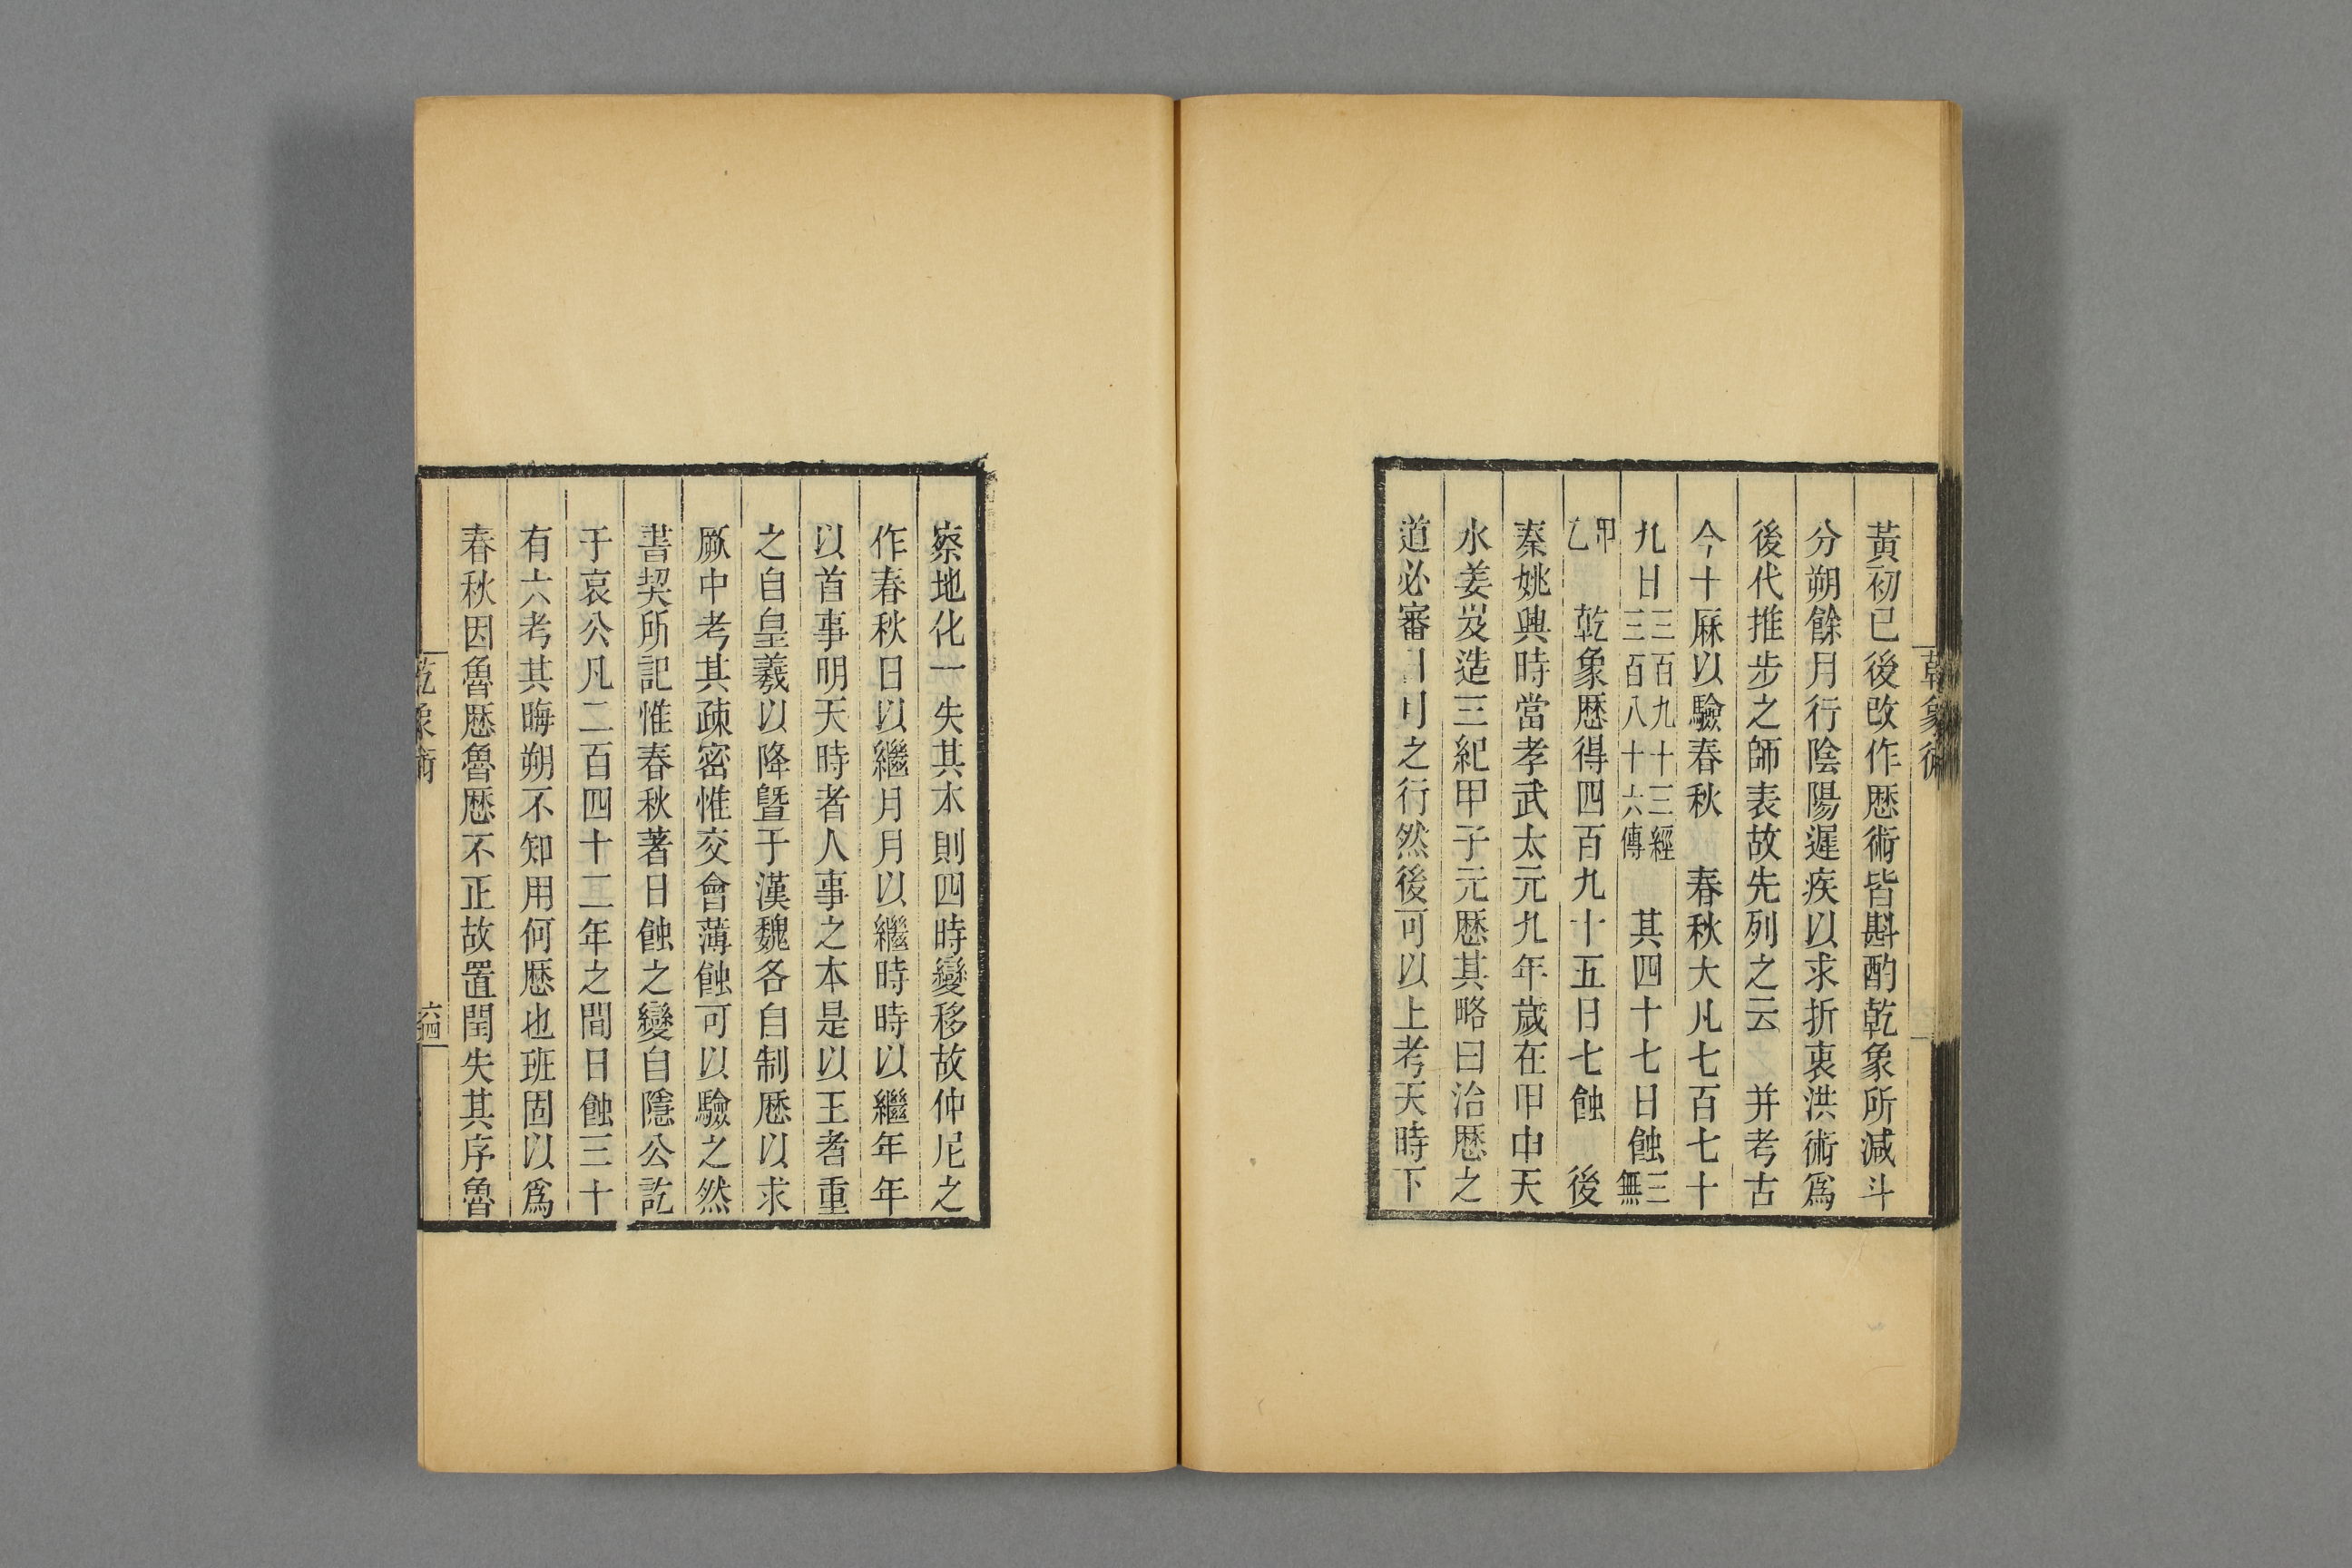 黃初已後改作歷術皆斟酌乾象所減斗
分朔餘月行陰陽遲疾以求折衷洪術爲
後代推步之師表故先列之云　并考古
今十厤以驗春秋　春秋大凡七百七十
九日三百九十三經三百八十六傳　其四十七日蝕三無
甲乙　乾象歷得四百九十五日七蝕　後
秦姚興時當孝武太元九年歲在甲申天
水姜岌造三紀甲子元歷其略曰治歷之
道必審日月之行然後可以上考天時下
乾象術
察地化一失其本則四時變移故仲尼之
作春秋日以繼月月以繼時時以繼年年
以首事明天時者人事之本是以王者重
之自皇羲以降曁于漢魏各自制歷以求
厥中考其疎密惟交會薄蝕可以驗之然
書契所記惟春秋著日蝕之變自隱公訖
于哀公凡二百四十二年之間日蝕三十
有六考其晦朔不知用何歷也班固以爲
春秋因魯歷魯歷不正故置閏失其序魯
乾象術